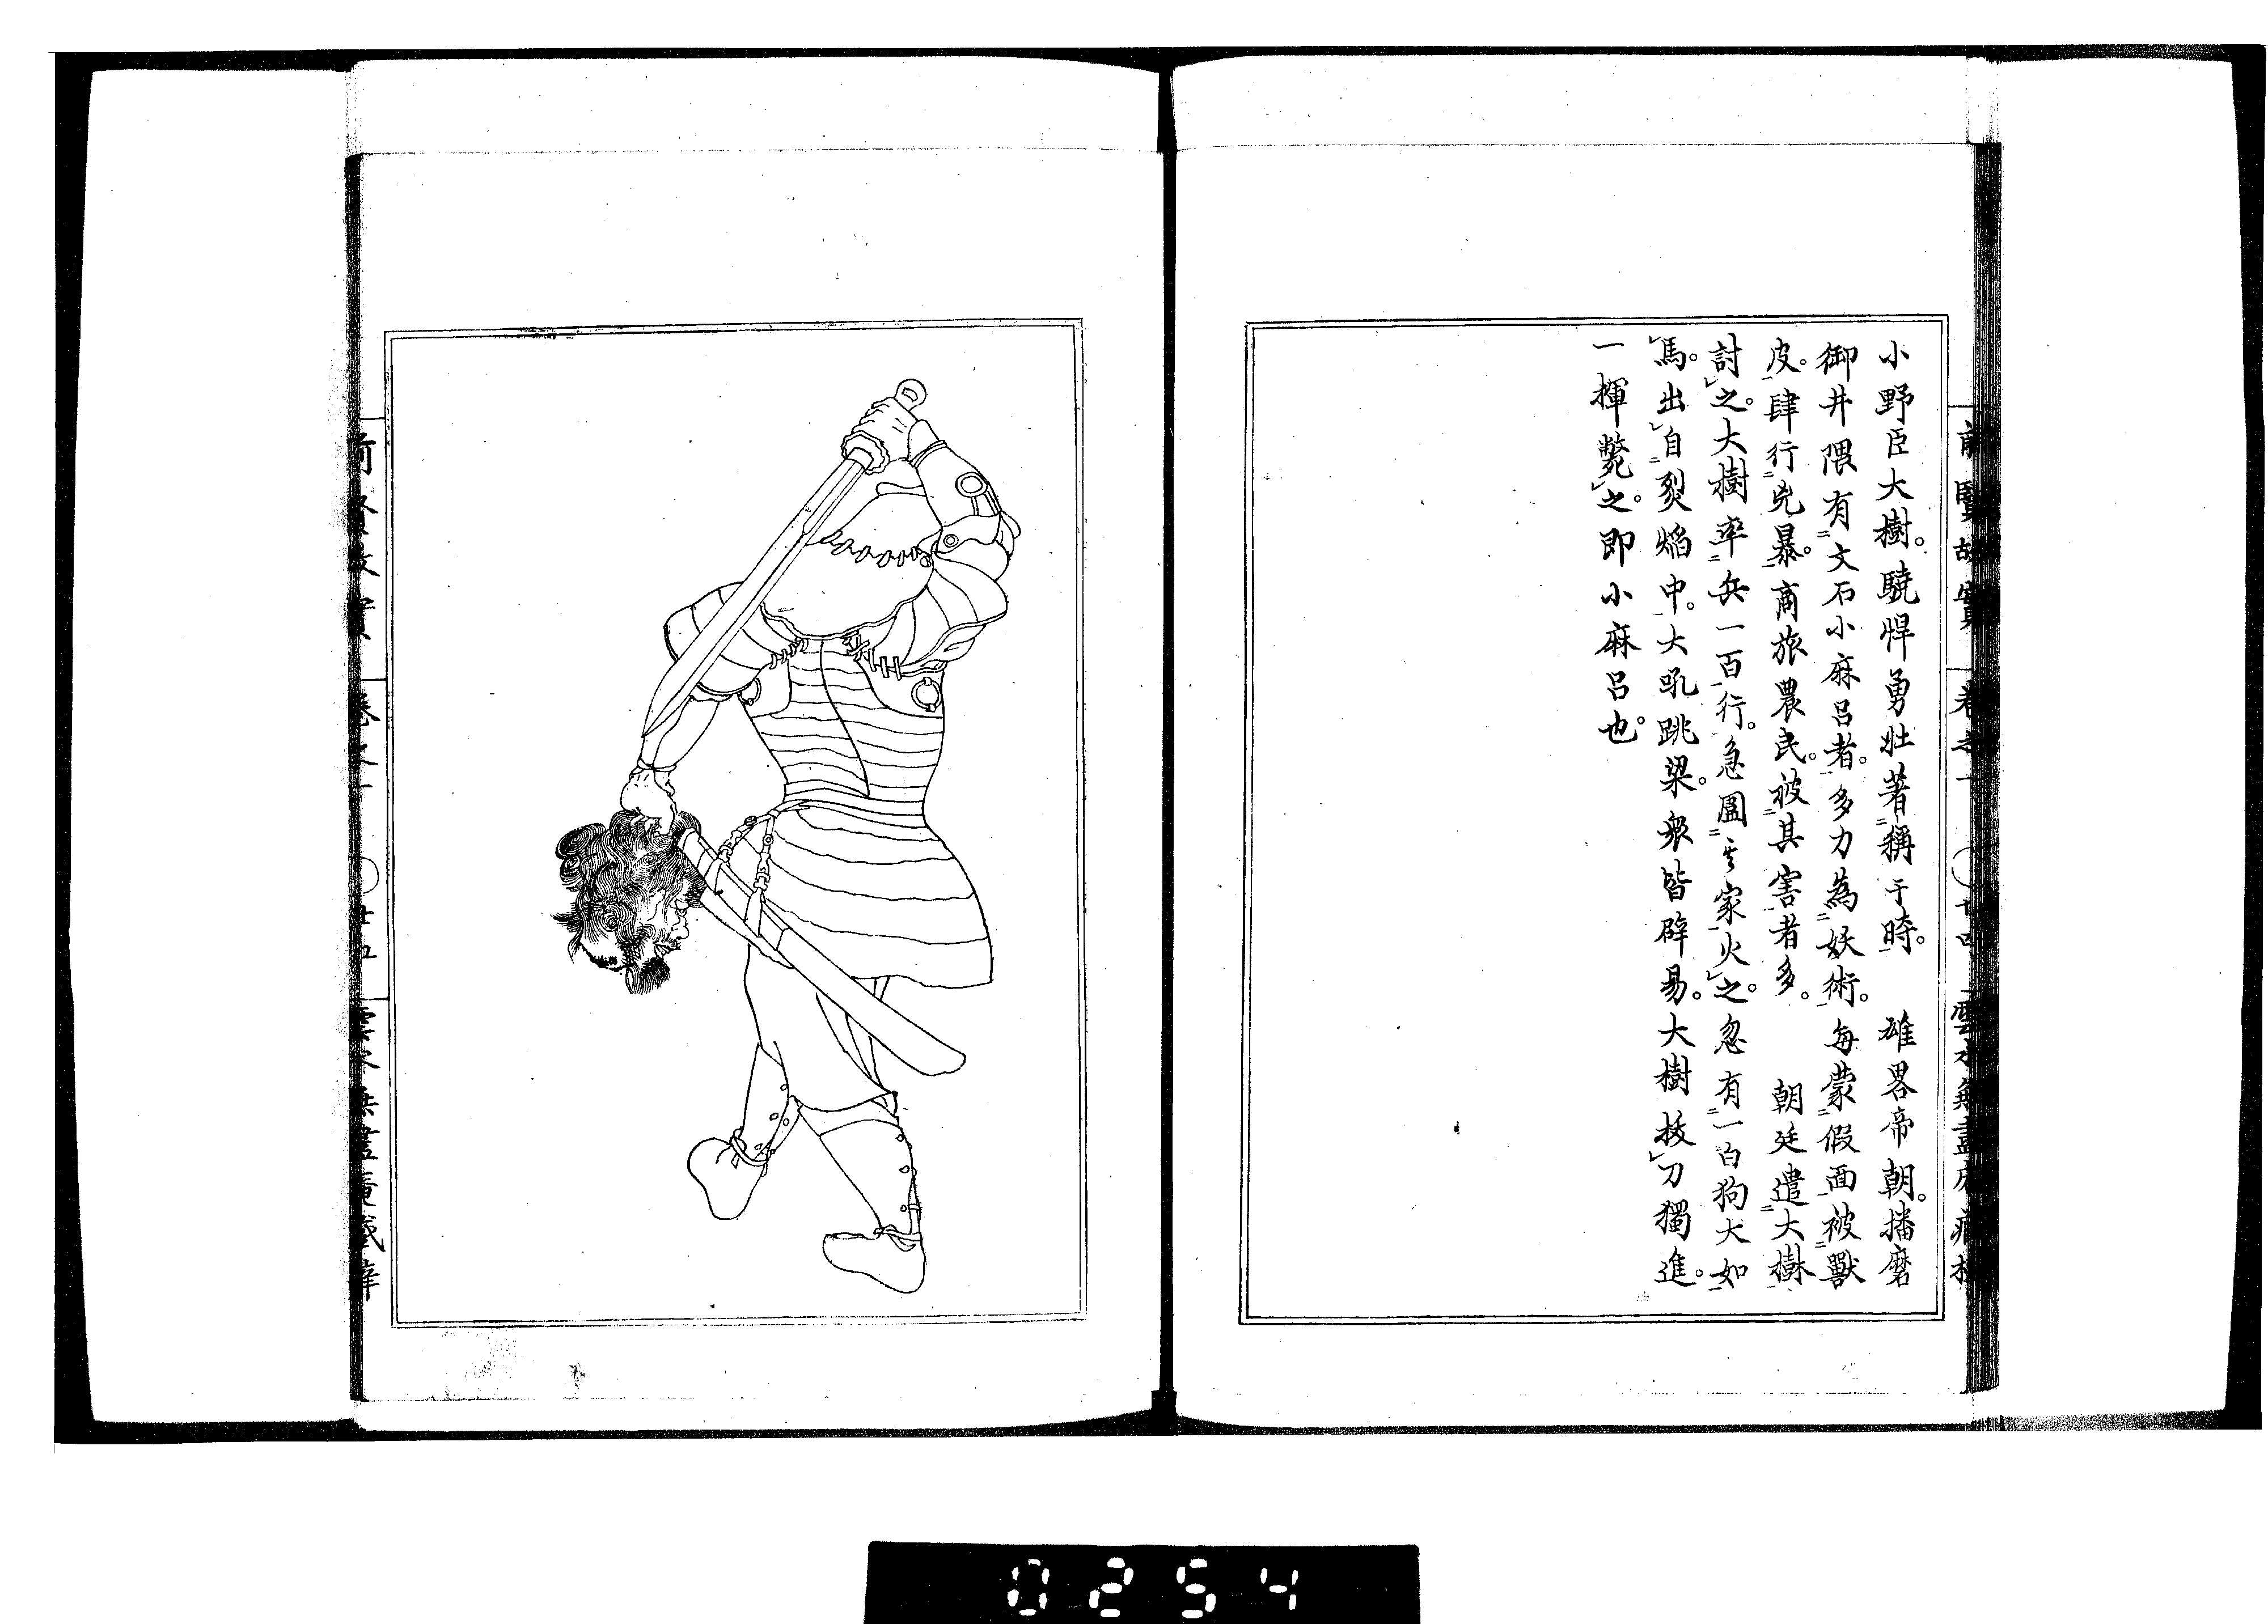 小野臣大樹。驍悍勇壯著稱于時。　雄畧帝朝。播磨
御井隈有文石小麻呂者。多力為妖術。每蒙假面被獸
皮。肆行兇暴。商旅農民。被其害者多。　朝廷遣大樹
討之。大樹率兵一百行。急圍其家火之。忽有一白狗大如
馬。出自烈焰中。大吼跳梁。衆皆辟易。大樹拔刀獨進。
一揮斃之。即小麻呂也。
前賢故實
卷之一
0254